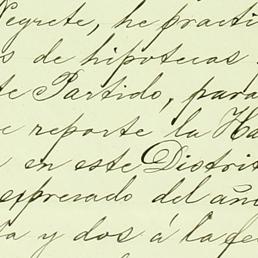 Negrete, he practi
s de hipotecas
te Partido, para
e reporte la Ha
en este Distrit
espresado del año
ta y dos á la fe